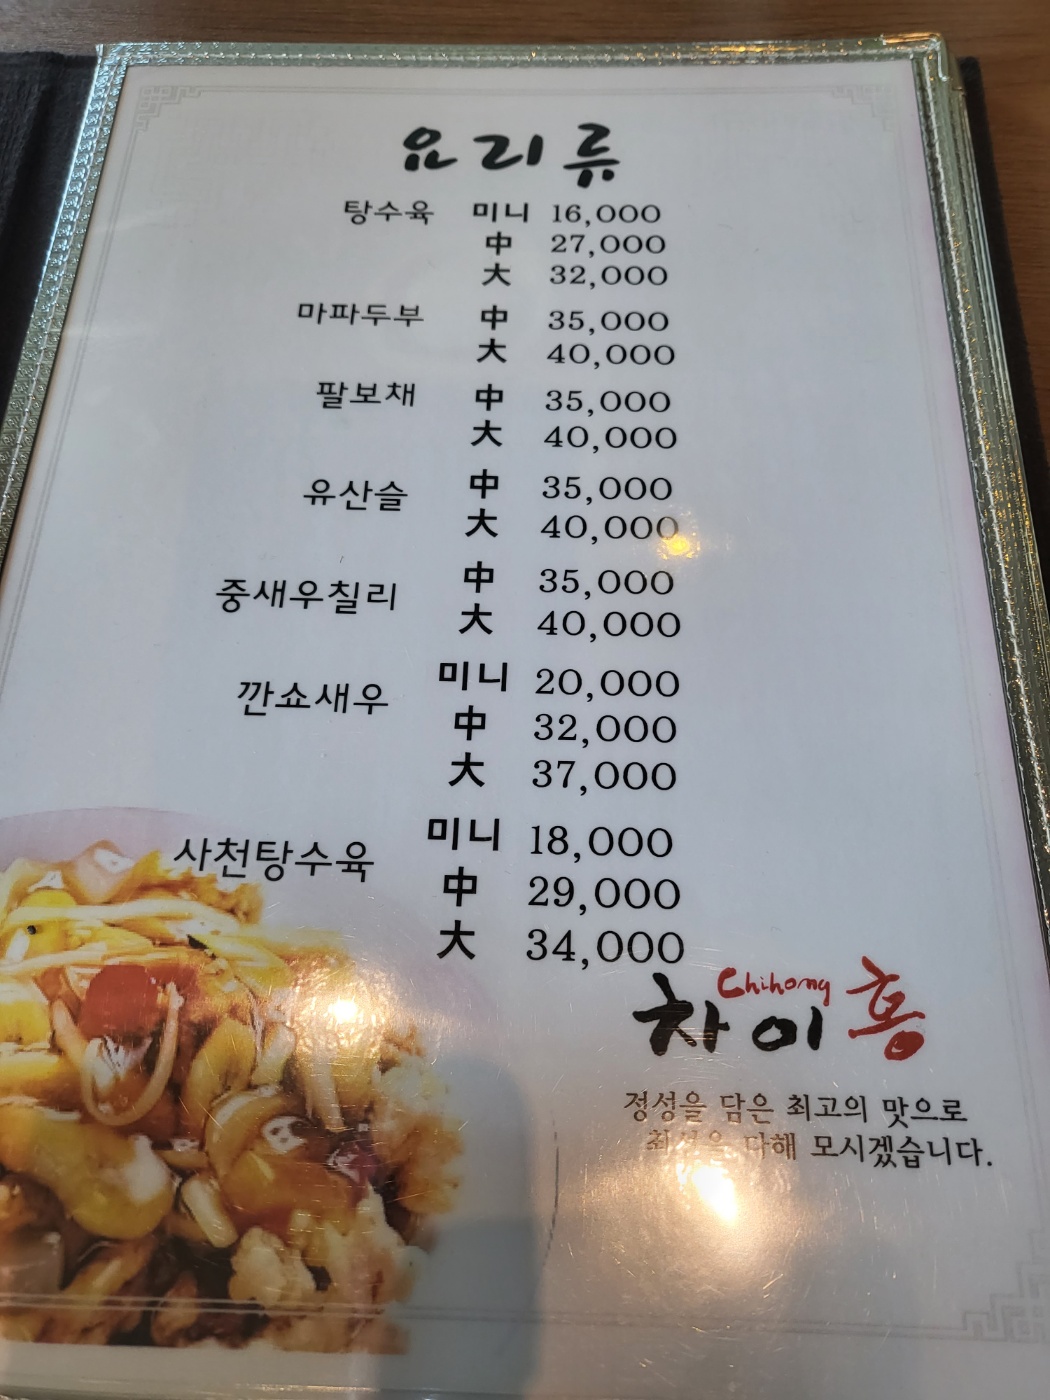 요리류
탕수육 미니 16,000
中 27,000
大 32,000
마파두부 中 35,000
大 40,000
팔보채 中 35,000
大 40,000
유산슬 中 35,000
大 40,000
중새우칠리 中 35,000
大 40,000
깐쇼새우 미니 20,000
中 32,000
大 37,000
사천탕수육 미니 18,000
中 29,000
大 34,000
Chihong
차이홍
정성을 담은 최고의 맛으로
최선을 다해 모시겠습니다.